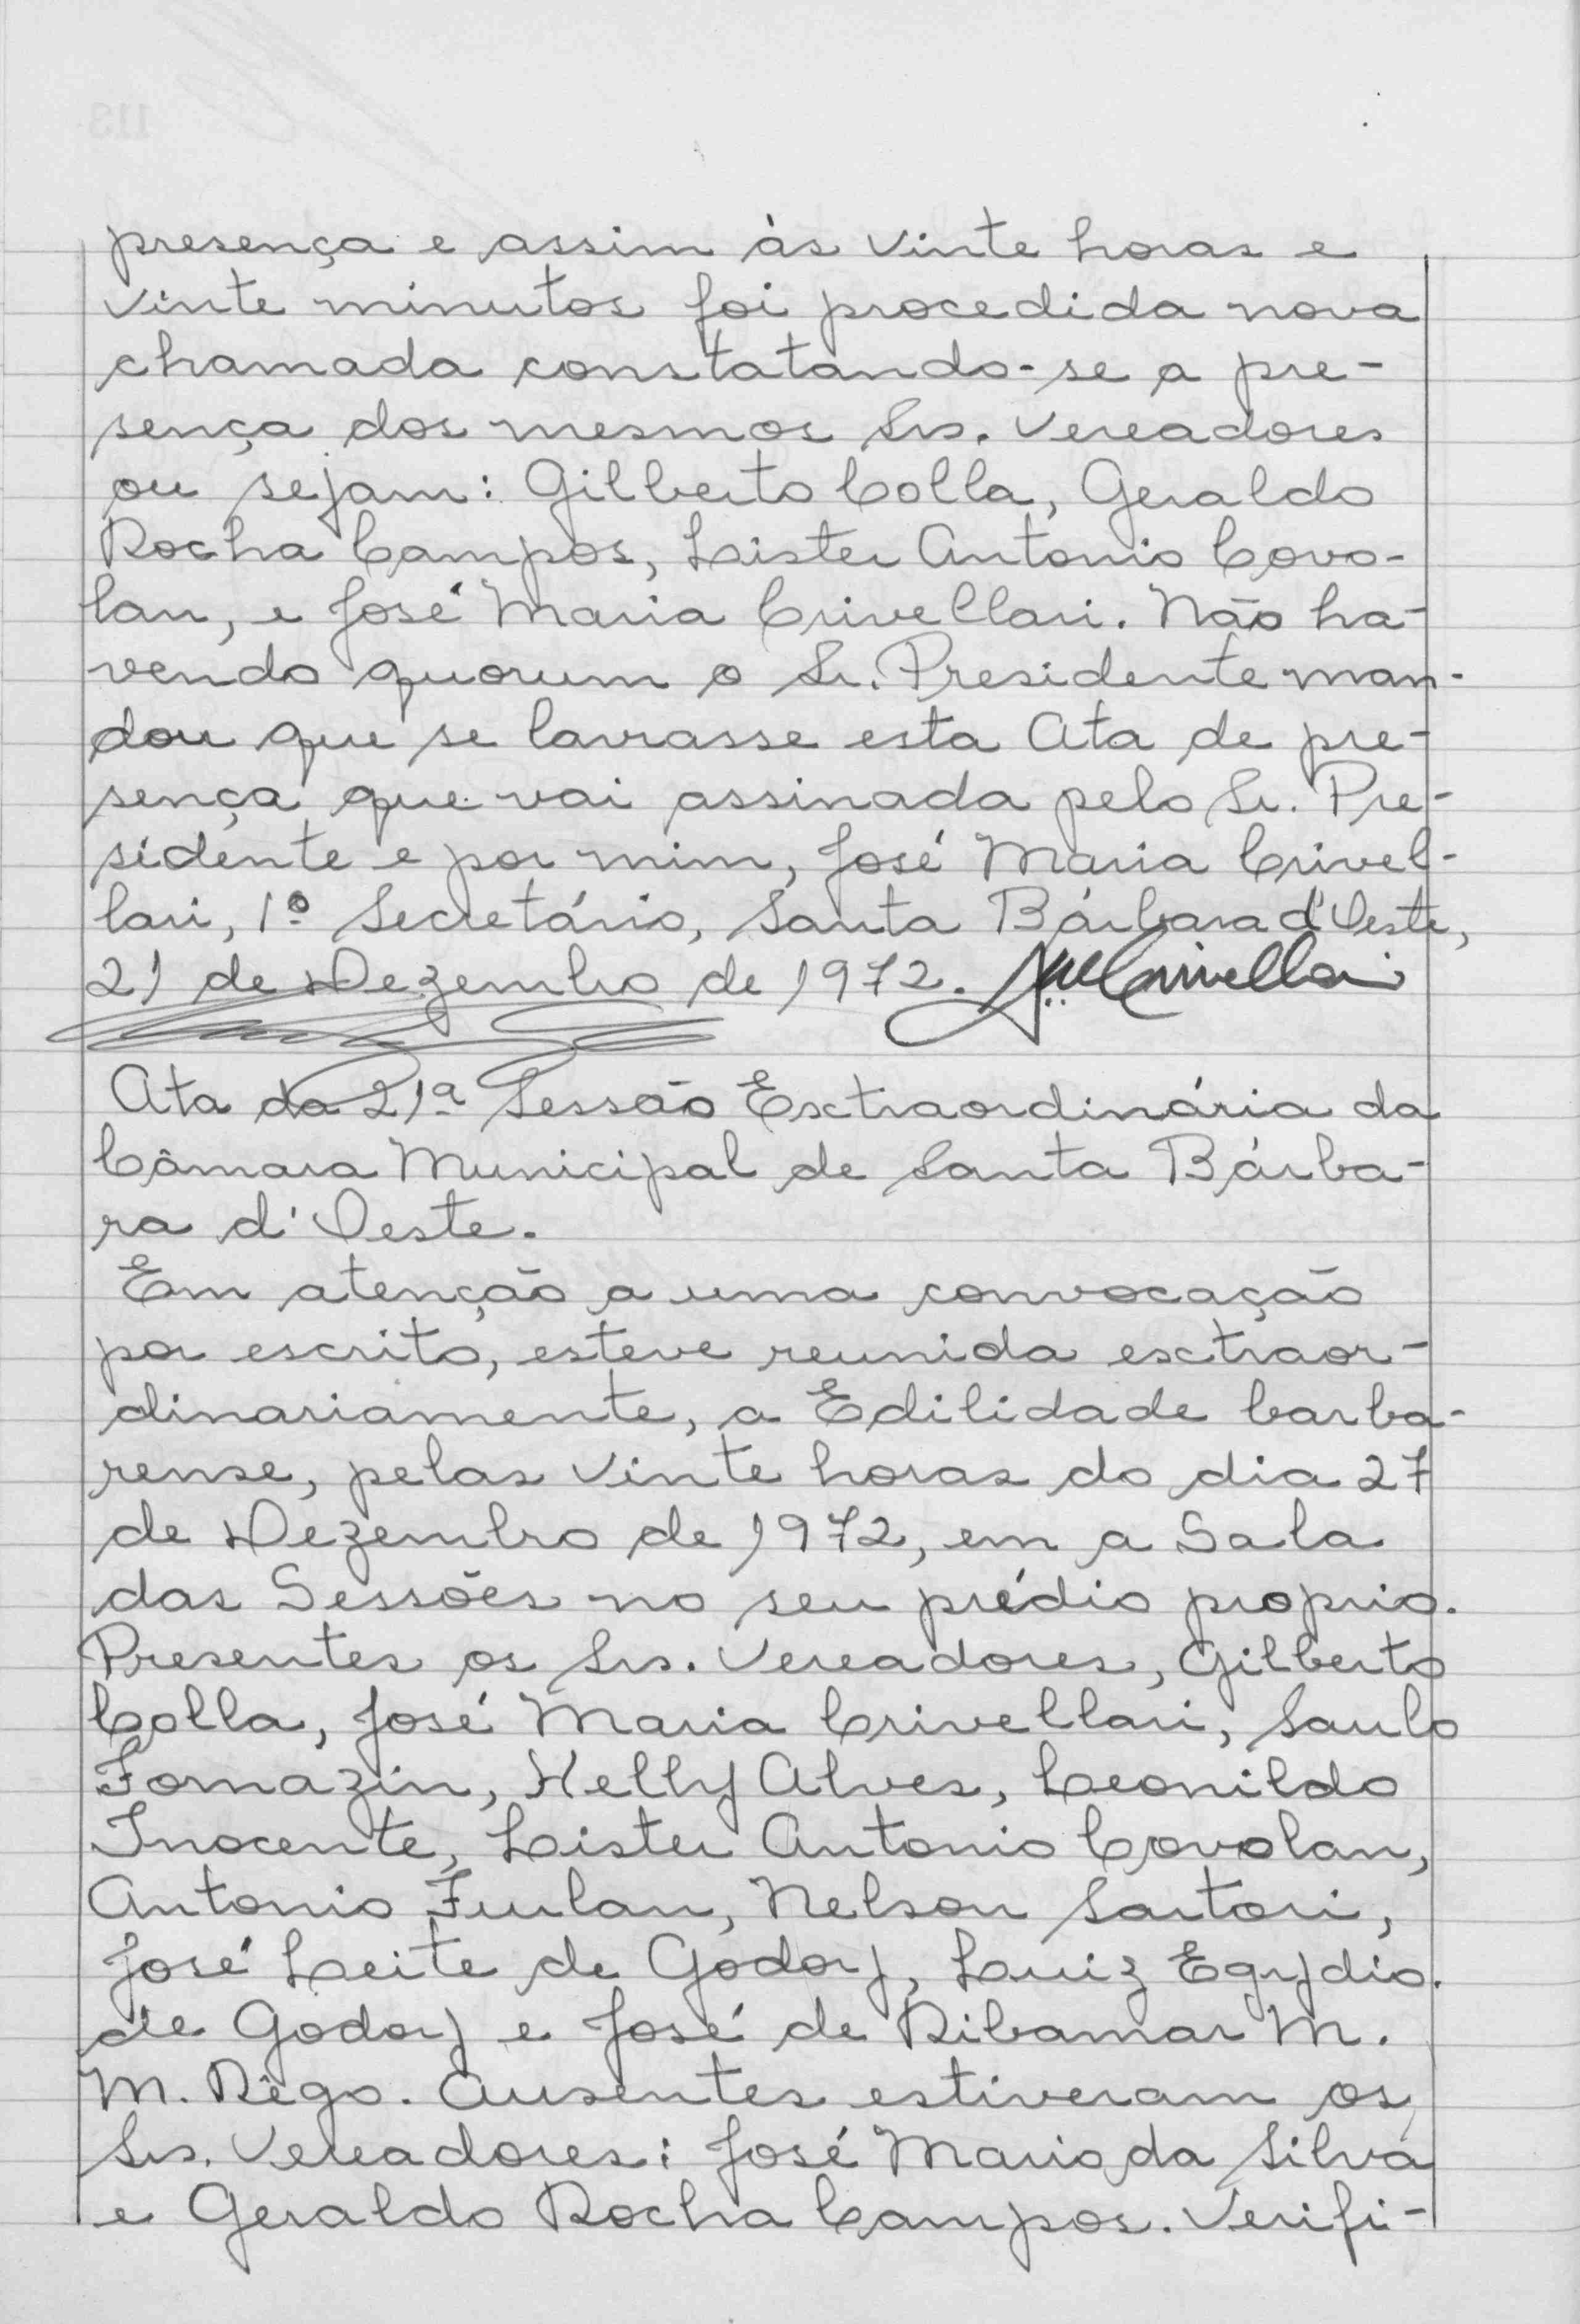 presença e assim às vinte horas e
vinte minutos foi procedida nova
chamada constatando-se a pre-
sença dos mesmos Srs. Vereadores
ou sejam: Gilberto Colla, Geraldo
Rocha Campos, Lister Antonio Covo-
lan, e José Maria Crivellari. Não ha-
vendo quorum o Sr. Presidente man-
dou que se lavrasse esta Ata de pre-
sença que vai assinada pelo Sr. Pre-
sidente e por mim, José Maria Crivel-
lari, 1º Secretário, Santa Bárbara d'Oeste,
21 de Dezembro de 1972. JMCrivellari
Ata da 21ª Sessão Extraordinária da
Câmara Municipal de Santa Bárba-
ra d'Oeste.
Em atenção a uma convocação
por escrito, esteve reunida extraor-
dinariamente, a Edilidade barba-
rense, pelas vinte horas do dia 27
de Dezembro de 1972, em a Sala
das Sessões no seu prédio proprio.
Presentes os Srs. Vereadores, Gilberto
Colla, José Maria Crivellari, Saulo
Fornazin, Helly Alves, Leonildo
Inocente, Lister Antonio Covolan,
Antonio Furlan, Nelson Sartori,
José Leite de Godoy, Luiz Egydio
de Godoy e José de Ribamar M.
M. Rêgo. Ausentes estiveram os
Srs. Vereadores: José Mario da Silva
e Geraldo Rocha Campos. Verifi-